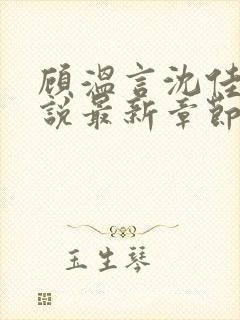 顾温言沈佳
說最新章節
玉生琴